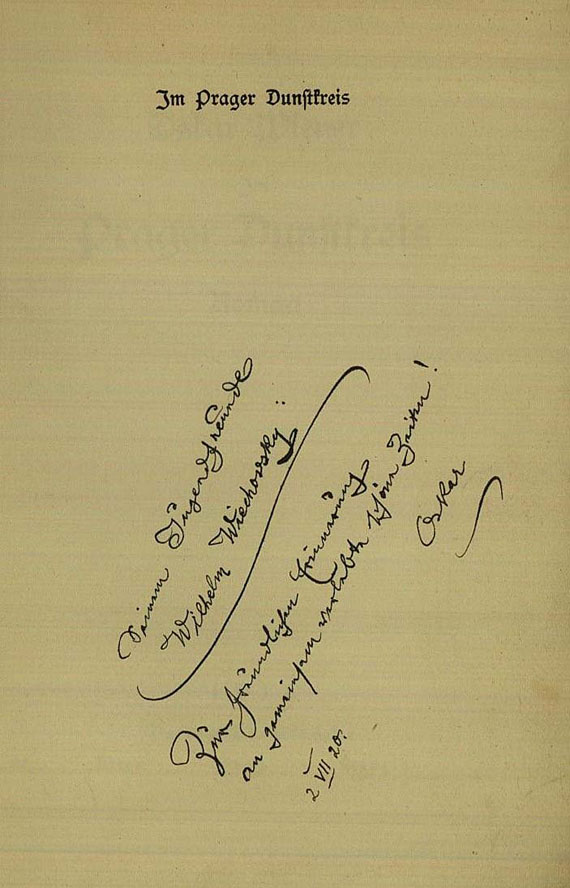 Im Prager Dunstkreis
Seinem Jugendfreunde
Wilhelm Wiechowsky:
Zur freundlichen Erinnerung
an gemeinsam verlebte schöne Zeiten!
Oskar
2 VII 20.